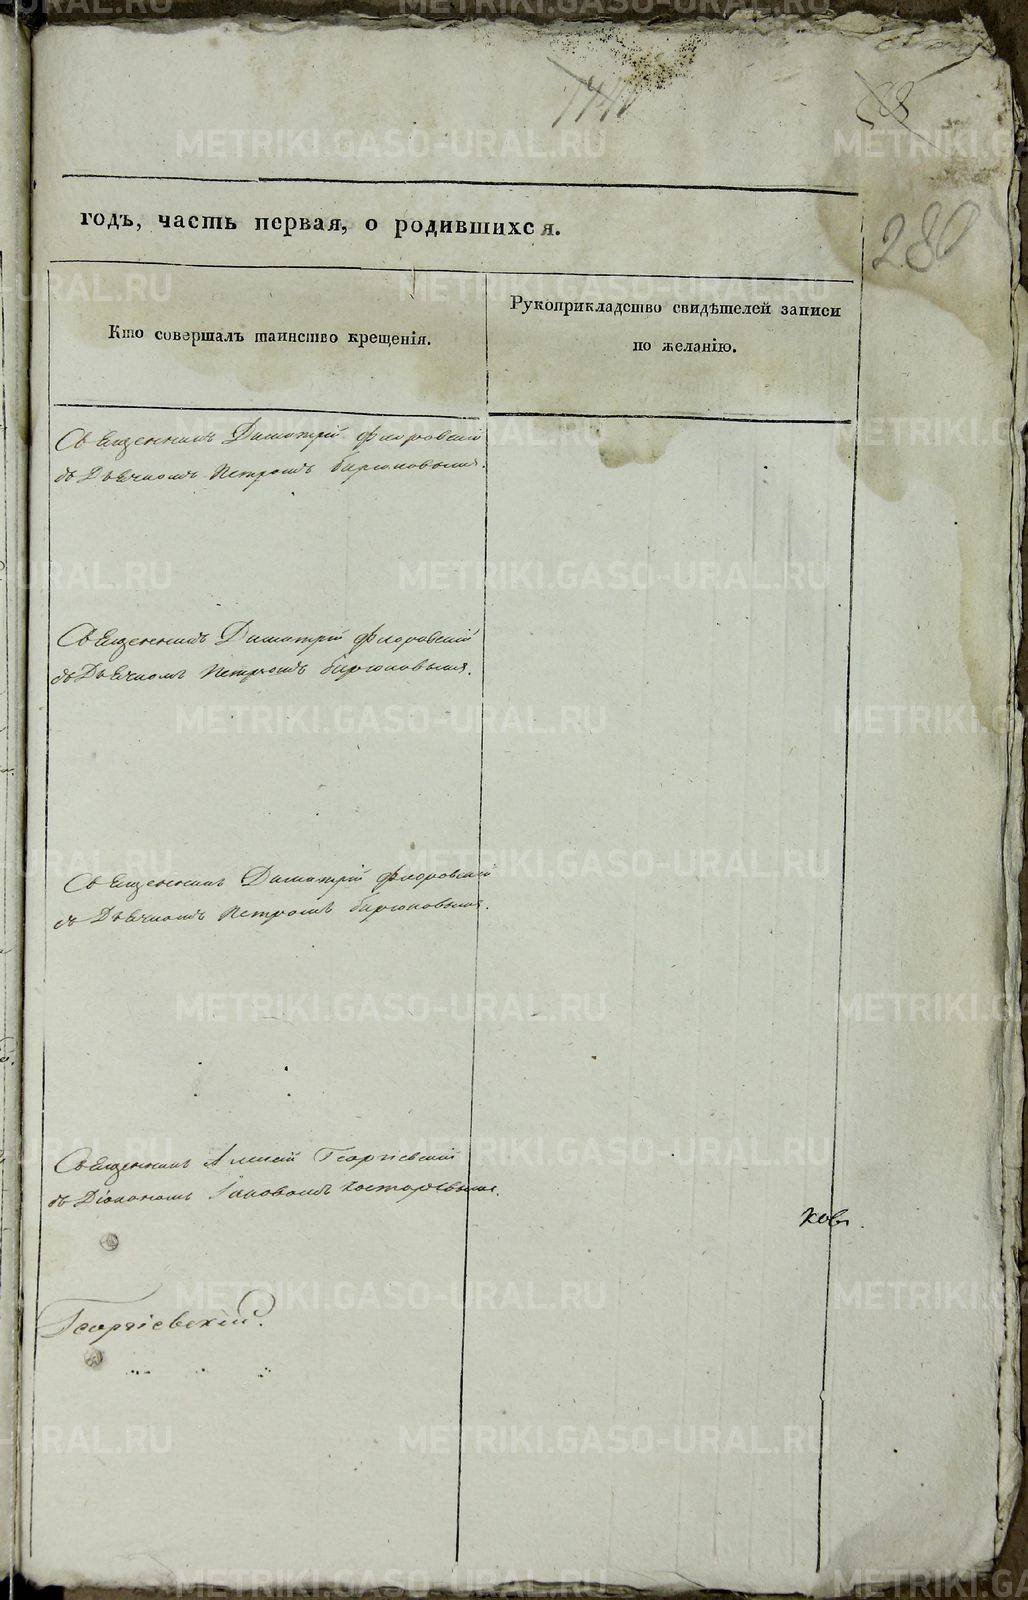 280
годъ, часть первая, о родившихся.
Кто совершалъ таинство крещенія.
Рукоприкладство свидѣтелей записи
по желанію.
Священникъ Димитрій Флоровскій
съ Дьячкомъ Петромъ Бирюковымъ.
Священникъ Димитрій Флоровскій
съ Дьячкомъ Петромъ Бирюковымъ.
Священникъ Димитрій Флоровскій
съ Дьячкомъ Петромъ Бирюковымъ.
Священникъ Алексій Георгіевскій
съ Діакономъ
Георгіевскій.
METRIKI.GASO-URAL.RU